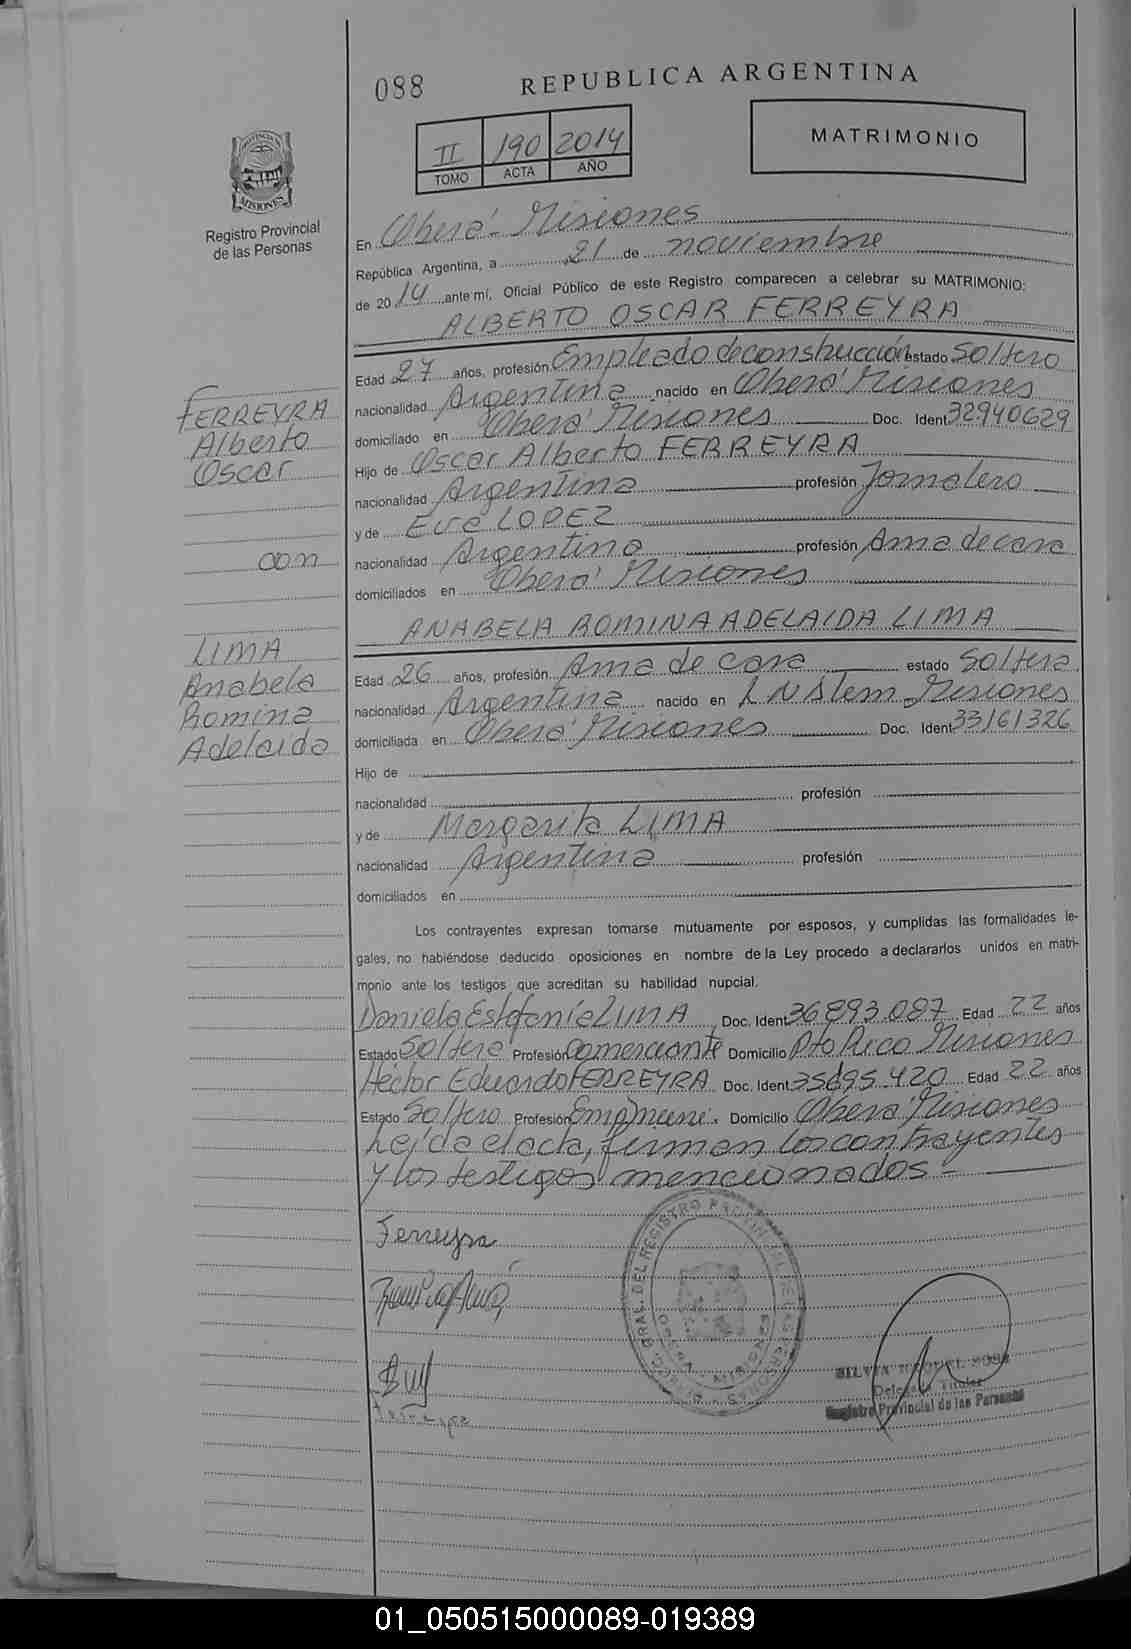 088
REPUBLICA ARGENTINA
II 190 2014
TOMO ACTA AÑO
MATRIMONIO
PROVINCIA
MISIONES
Registro Provincial
de las Personas
En Oberá - Misiones
República Argentina, a 21 de noviembre
de 2014 ante mí, Oficial Público de este Registro comparecen a celebrar su MATRIMONIO:
ALBERTO OSCAR FERREYRA
Edad 27 años, profesión Empleado de construcción estado Soltero
nacionalidad Argentina nacido en Oberá Misiones
domiciliado en Oberá Misiones Doc. Ident 32940629
Hijo de Oscar Alberto FERREYRA
nacionalidad Argentina profesión Jornalero
y de Eva LOPEZ
nacionalidad Argentina profesión Ama de casa
domiciliados en Oberá Misiones
FERREYRA
Alberto
Oscar
con
LIMA
Anabela
Romina
Adelaida
ANABELA ROMINA ADELAIDA LIMA
Edad 26 años, profesión Ama de casa estado Soltera
nacionalidad Argentina nacido en L N Alem Misiones
domiciliada en Oberá Misiones Doc. Ident 33161326
Hijo de
nacionalidad profesión
y de Margarita LIMA
nacionalidad Argentina profesión
domiciliados en
Los contrayentes expresan tomarse mutuamente por esposos, y cumplidas las formalidades le-
gales, no habiéndose deducido oposiciones en nombre de la Ley procedo a declararlos unidos en matri-
monio ante los testigos que acreditan su habilidad nupcial.
Daniela Estefanía LIMA Doc. Ident 36893.087 Edad 22 años
Estado Soltera Profesión Comerciante Domicilio Pto Rico Misiones
Héctor Eduardo FERREYRA Doc. Ident 35695.420 Edad 22 años
Estado Soltero Profesión Emp. muni. Domicilio Oberá Misiones
Leída el acta, firman los contrayentes
y los testigos mencionados -
Ferreyra
Delegada Titular
Registro Provincial de las Personas
01_050515000089-019389